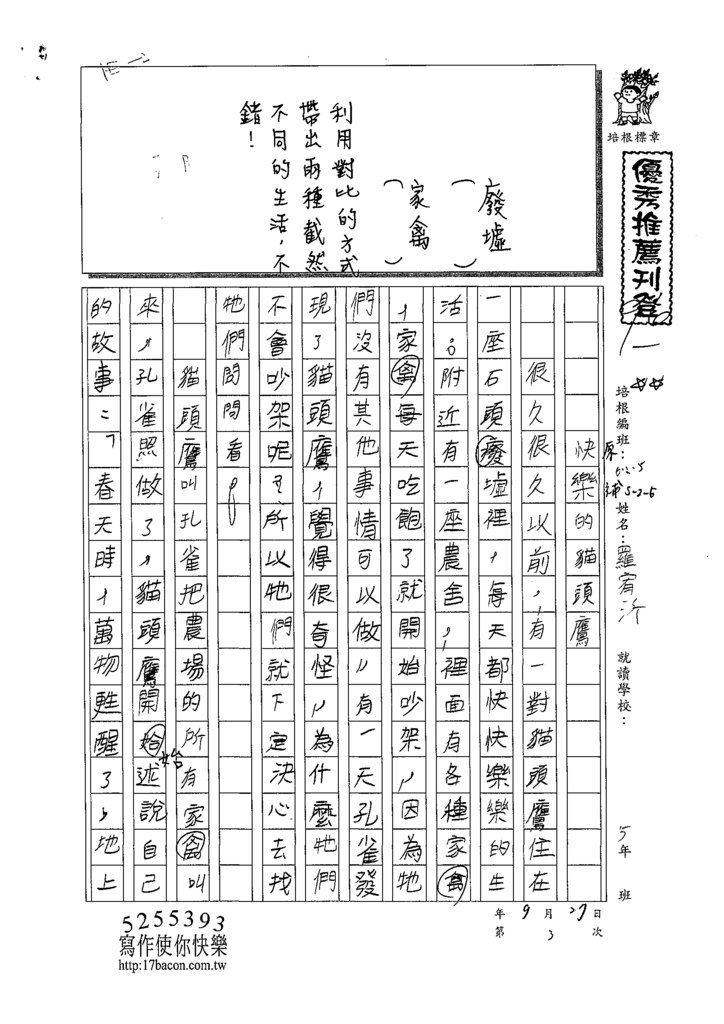 培根標章
優秀推薦刊登
廢墟
（　　）
家禽
（　　）
利用對比的方式
帶出兩種截然
不同的生活，不
錯！
培根編班：
姓名：羅宥
就讀學校：
5年　班
年9月27日
第3次
快樂的貓頭鷹
很久很久以前，有一對貓頭鷹住在
一座石頭廢墟裡，每天都快快樂樂的生
活。附近有一座農舍，裡面有各種家禽
，家禽每天吃飽了就開始吵架，因為牠
們沒有其他事情可以做，有一天孔雀發
現了貓頭鷹，覺得很奇怪，為什麼牠們
不會吵架呢？所以牠們就下定決心去找
牠們問問看。
貓頭鷹叫孔雀把農場的所有家禽叫
來，孔雀照做了，貓頭鷹開始述說自己
始
的故事：「春天時，萬物甦醒了，地上
5255393
寫作使你快樂
http:17bacon.com.tw